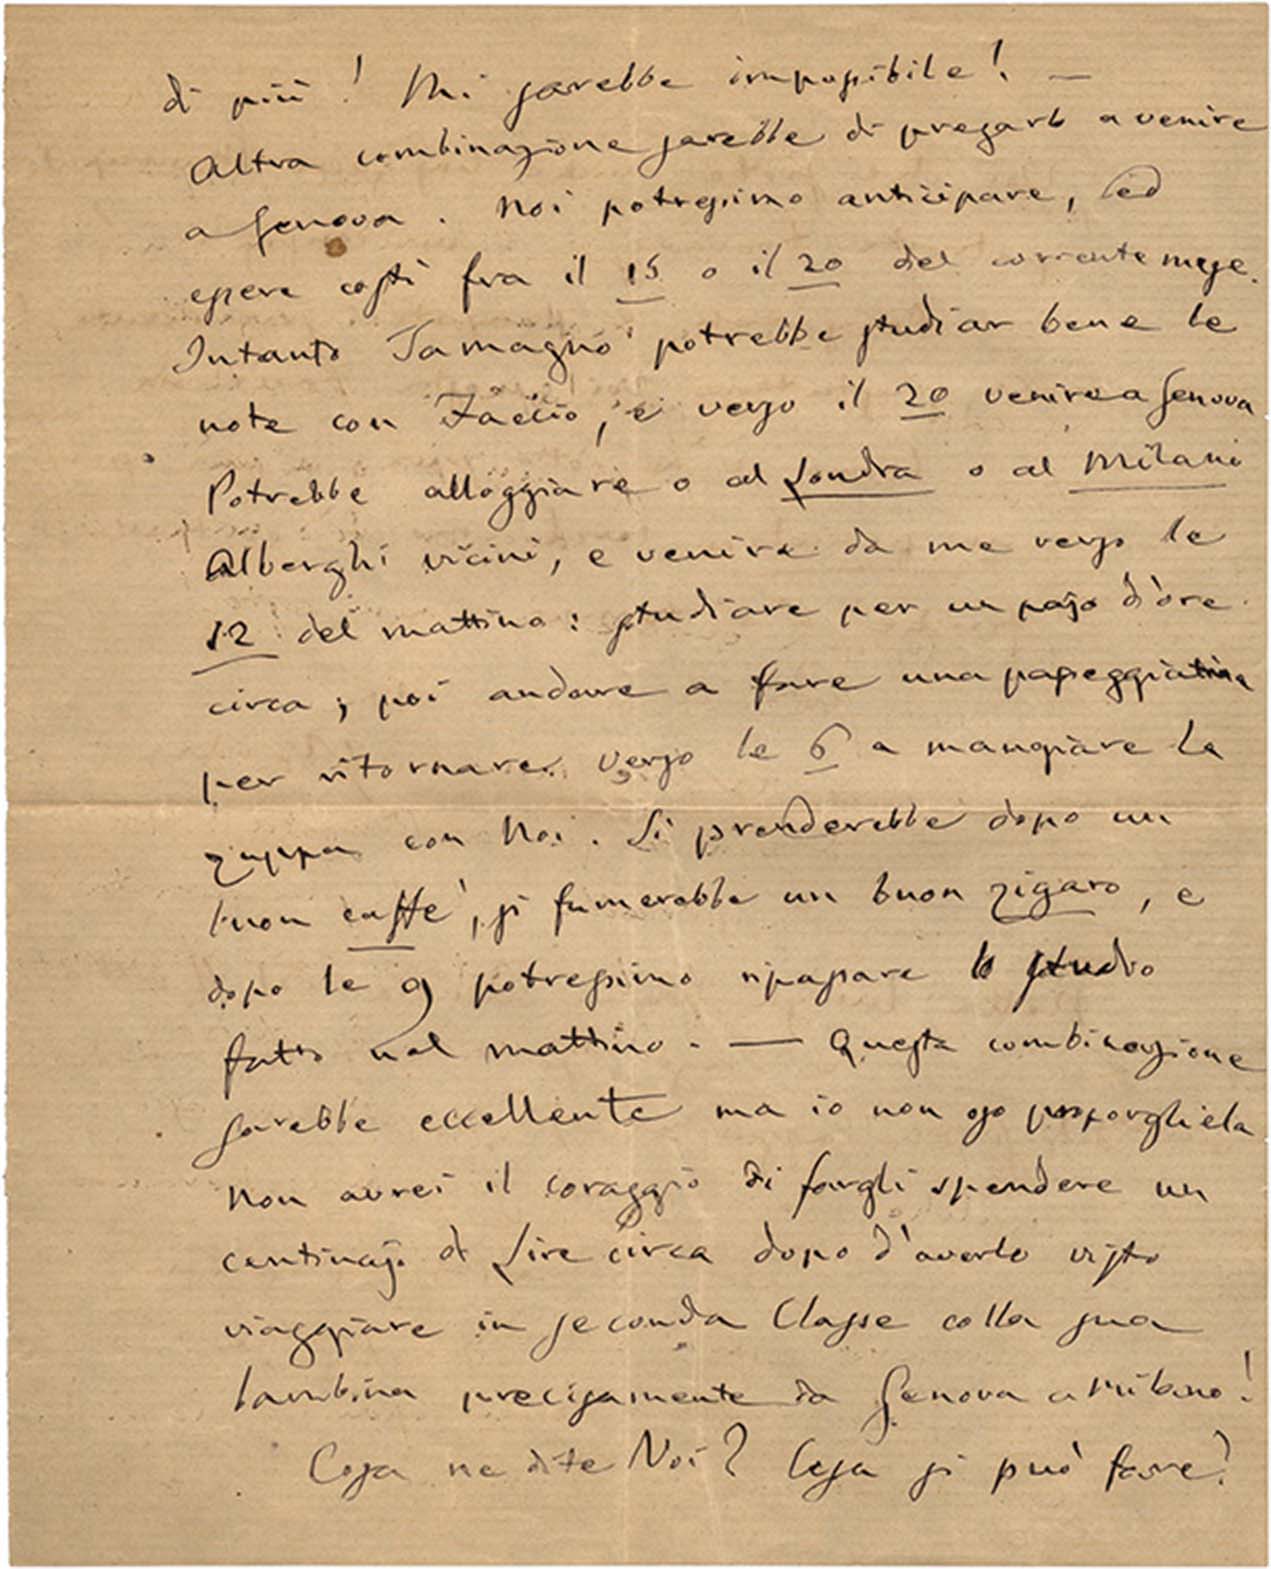 di più! Mi sarebbe impossibile! —
Altra combinazione sarebbe di pregarlo a venire
a Genova. Noi potressimo anticipare, ed
essere costì fra il 15 o il 20 del corrente mese.
Intanto Tamagno potrebbe studiar bene le
note con Faccio, e verso il 20 venire a Genova
Potrebbe alloggiare o al Londra o al Milano
Alberghi vicini, e venire da me verso le
12 del mattino: studiare per un pajo d'ore
circa; poi andare a fare una passeggiatina
per ritornare verso le 6 a mangiare la
zuppa con Noi. Si prenderebbe dopo un
buon caffè, si fumerebbe un buon zigaro, e
dopo le 9 potressimo ripassare lo studio
fatto nel mattino. — Questa combinazione
sarebbe eccellente ma io non oso proporgliela
Non avrei il coraggio di fargli spendere un
centinajo di Lire circa dopo d'averlo visto
viaggiare in seconda Classe colla sua
bambina precisamente da Genova a Milano!
Cosa ne dite Voi? Cosa si può fare?